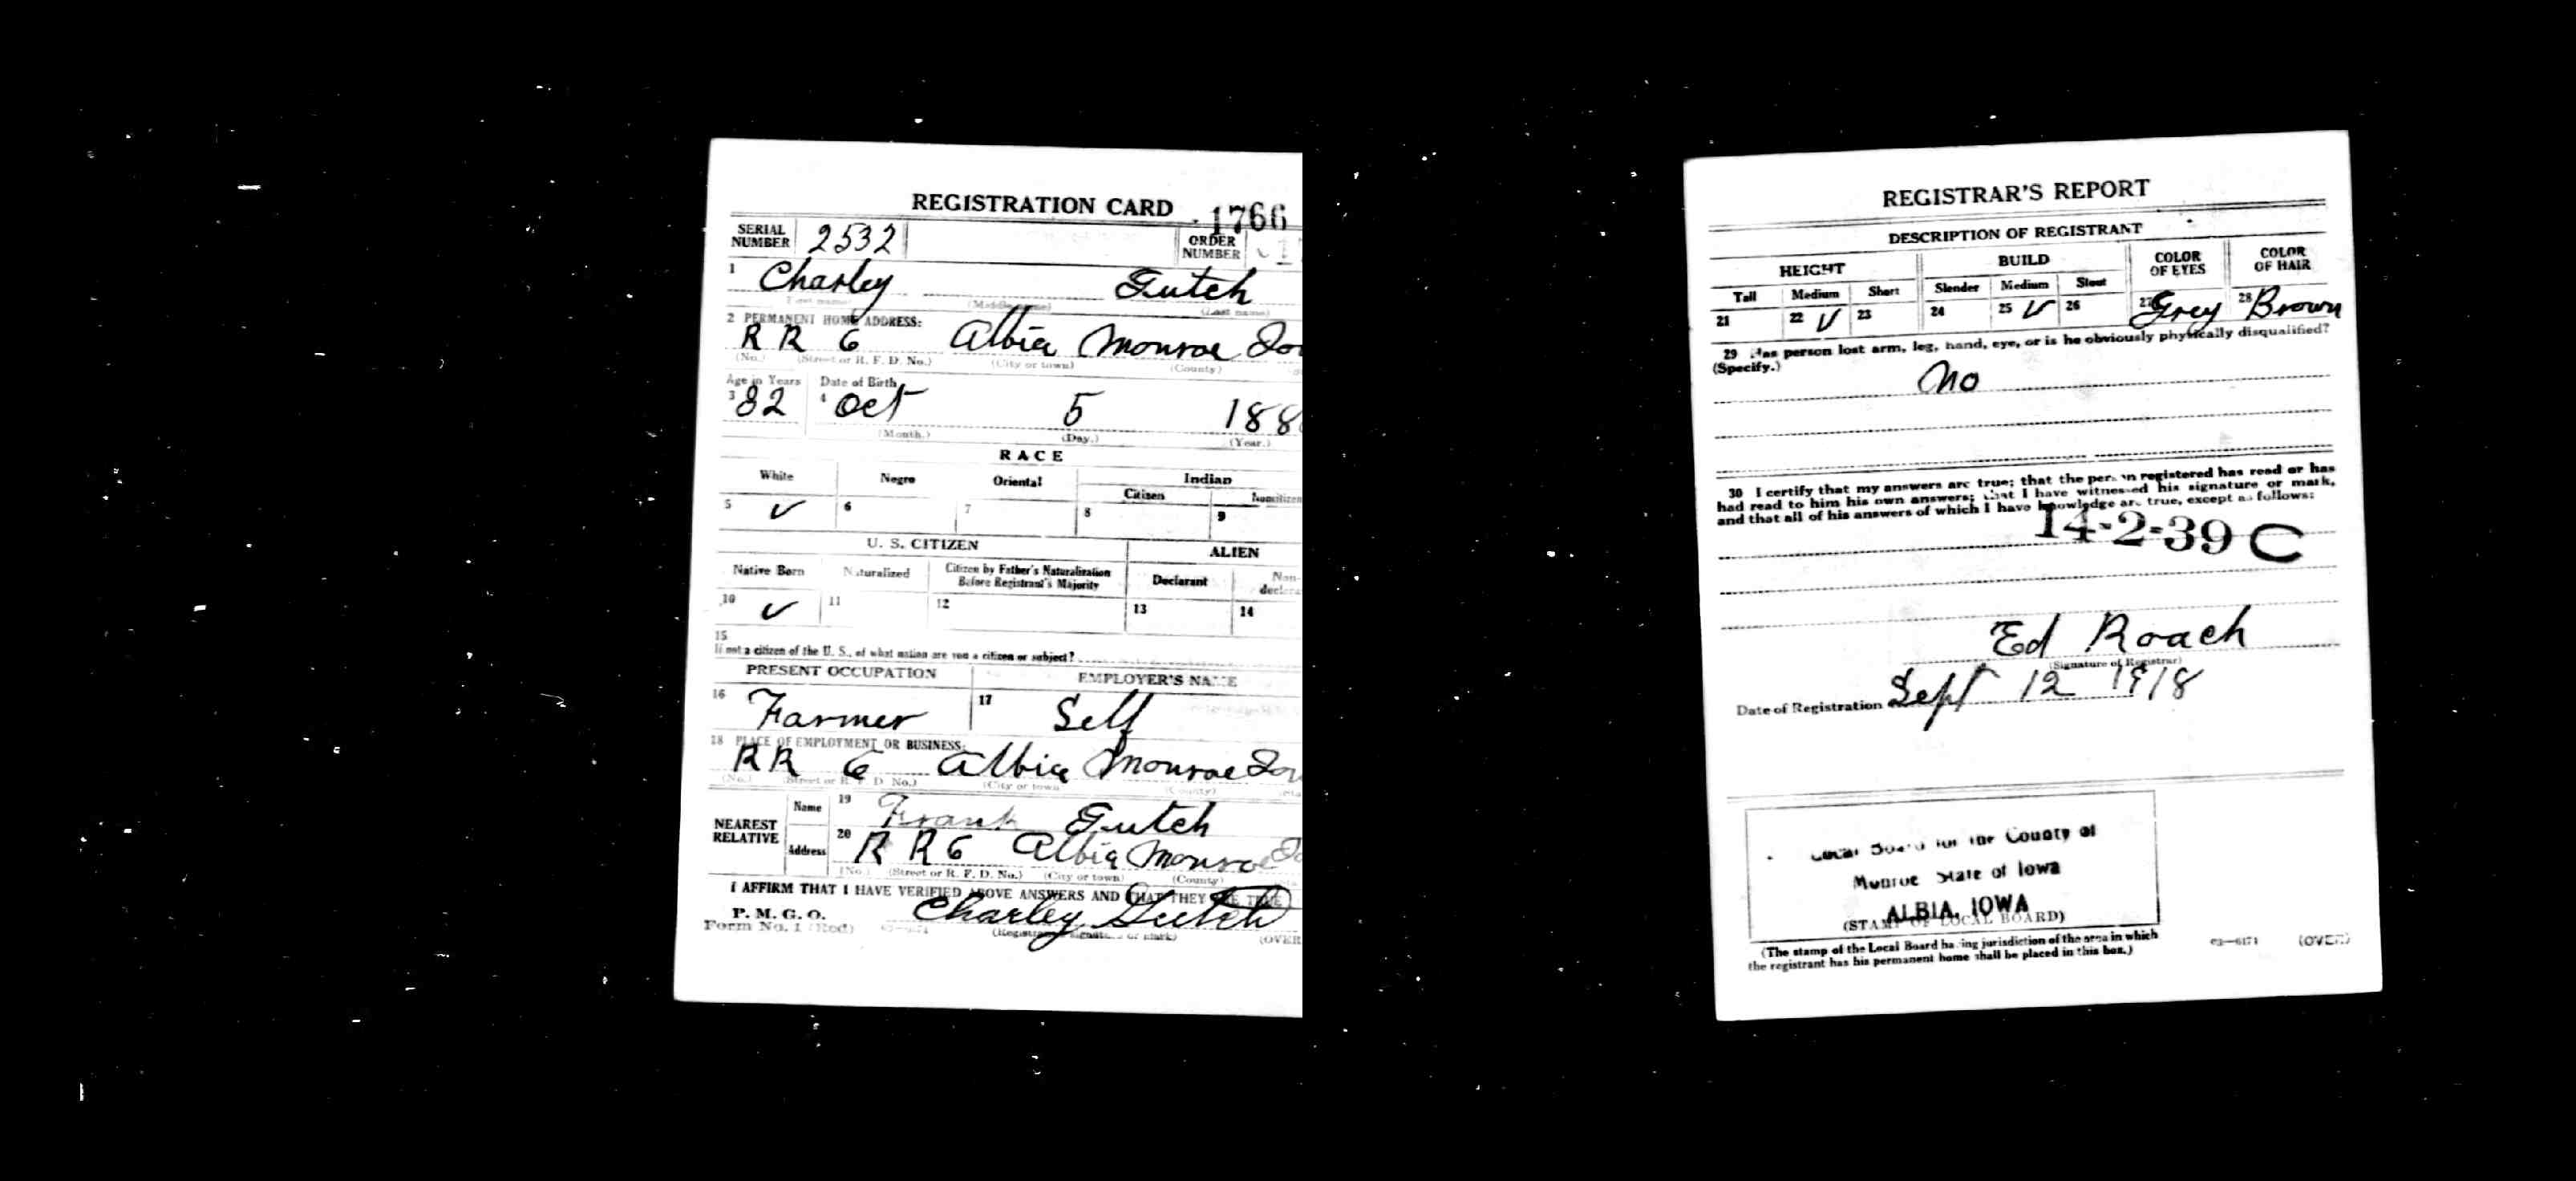 REGISTRATION CARD 1766
SERIAL NUMBER 2532 ORDER NUMBER
1 Charley Gutch
(First name) (Middle name) (Last name)
2 PERMANENT HOME ADDRESS:
R R 6 Albia Monroe
(No.) (Street or R. F. D. No.) (City or town) (County)
Age in Years Date of Birth
3 32 4 Oct 5 188
(Month.) (Day.) (Year.)
RACE
White Negro Oriental Indian
Citizen Noncitizen
5 V 6 7 8 9
U. S. CITIZEN ALIEN
Native Born Naturalized Citizen by Father's Naturalization Before Registrant's Majority Declarant Non-
10 V 11 12 13 14
15
If not a citizen of the U. S., of what nation are you a citizen or subject?
PRESENT OCCUPATION EMPLOYER'S NAME
16 Farmer 17 Self
18 PLACE OF EMPLOYMENT OR BUSINESS:
R R 6 Albia Monroe
(No.) (Street or R. F. D. No.) (City or town) (County)
NEAREST RELATIVE
Name 19 Frank Gutch
Address 20 R R 6 Albia Monroe
(No.) (Street or R. F. D. No.) (City or town) (County)
I AFFIRM THAT I HAVE VERIFIED ABOVE ANSWERS AND THAT THEY ARE TRUE
P. M. G. O.
Form No. 1 (Red) Charley Gutch
(Registrant's signature or mark) (OVER
REGISTRAR'S REPORT
DESCRIPTION OF REGISTRANT
HEIGHT BUILD COLOR OF EYES COLOR OF HAIR
Tall Medium Short Slender Medium Stout
21 22 V 23 24 25 V 26 27 Grey 28 Brown
29 Has person lost arm, leg, hand, eye, or is he obviously physically disqualified?
(Specify.)
No
30 I certify that my answers are true; that the person registered has read or has
had read to him his own answers; that I have witnessed his signature or mark,
and that all of his answers of which I have knowledge are true, except as follows:
14-2-39 C
Ed Roach
(Signature of Registrar)
Date of Registration Sept 12 1918
Local Board for the County of
Monroe State of Iowa
ALBIA, IOWA
(STAMP OF LOCAL BOARD)
(The stamp of the Local Board having jurisdiction of the area in which
the registrant has his permanent home shall be placed in this box.)
03—6171 (OVER)